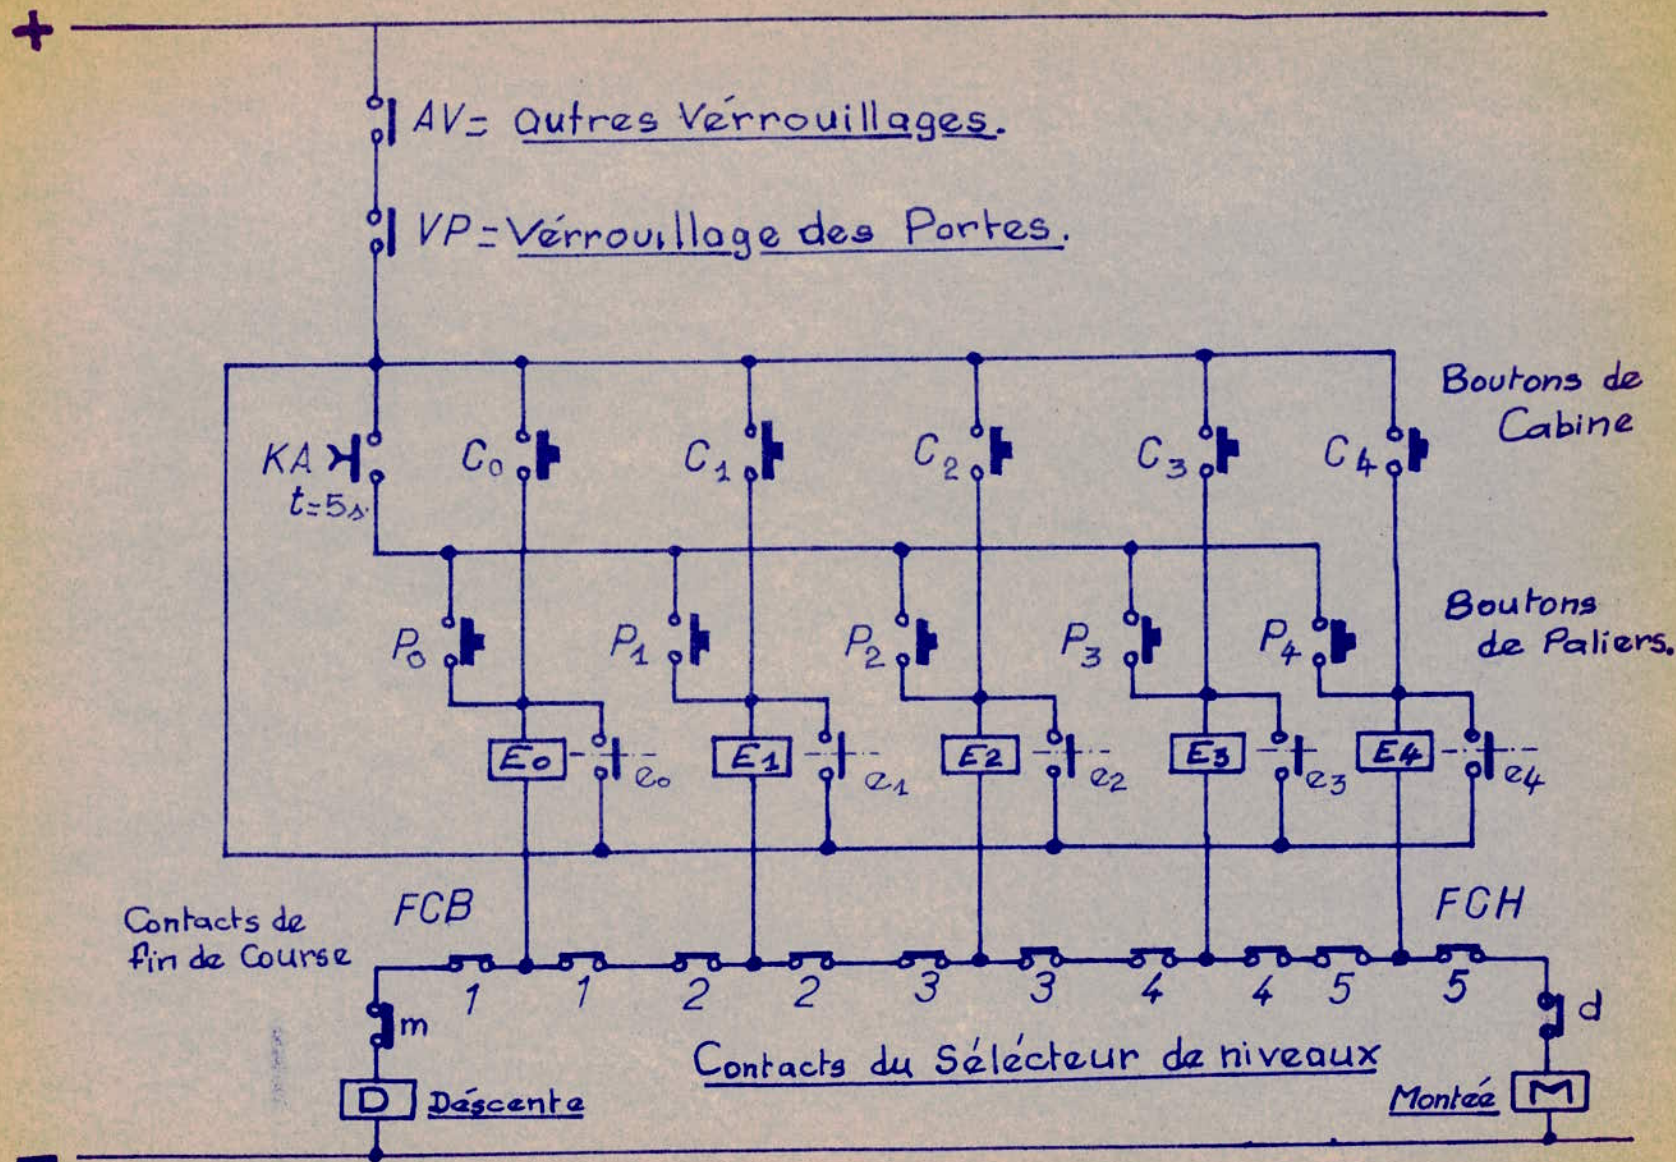 +
AV= autres Vérrouillages.
VP=Vérrouillage des Portes.
Boutons de
Cabine
KA
t=5s
C0
C1
C2
C3
C4
Boutons
de Paliers.
P0
P1
P2
P3
P4
E0
e0
E1
e1
E2
e2
E3
e3
E4
e4
Contacts de
fin de Course
FCB
FCH
1
1
2
2
3
3
4
4
5
5
m
d
Contacts du Sélécteur de niveaux
D
Déscente
Montéé
M
-